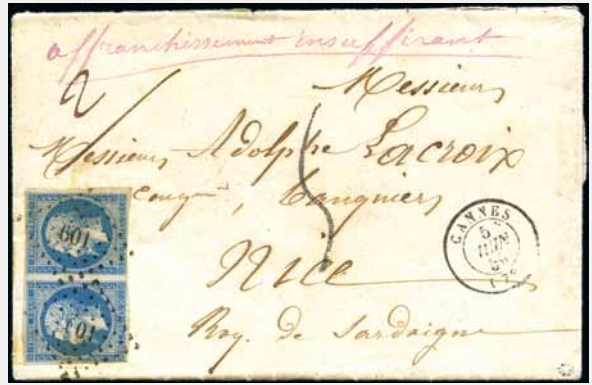 affranchissement insuffisant
2/
Messieurs
Messieurs Adolphe Lacroix
Banquiers
Nice
Roy. de Sardaigne
601
601
CANNES
5
JUIN